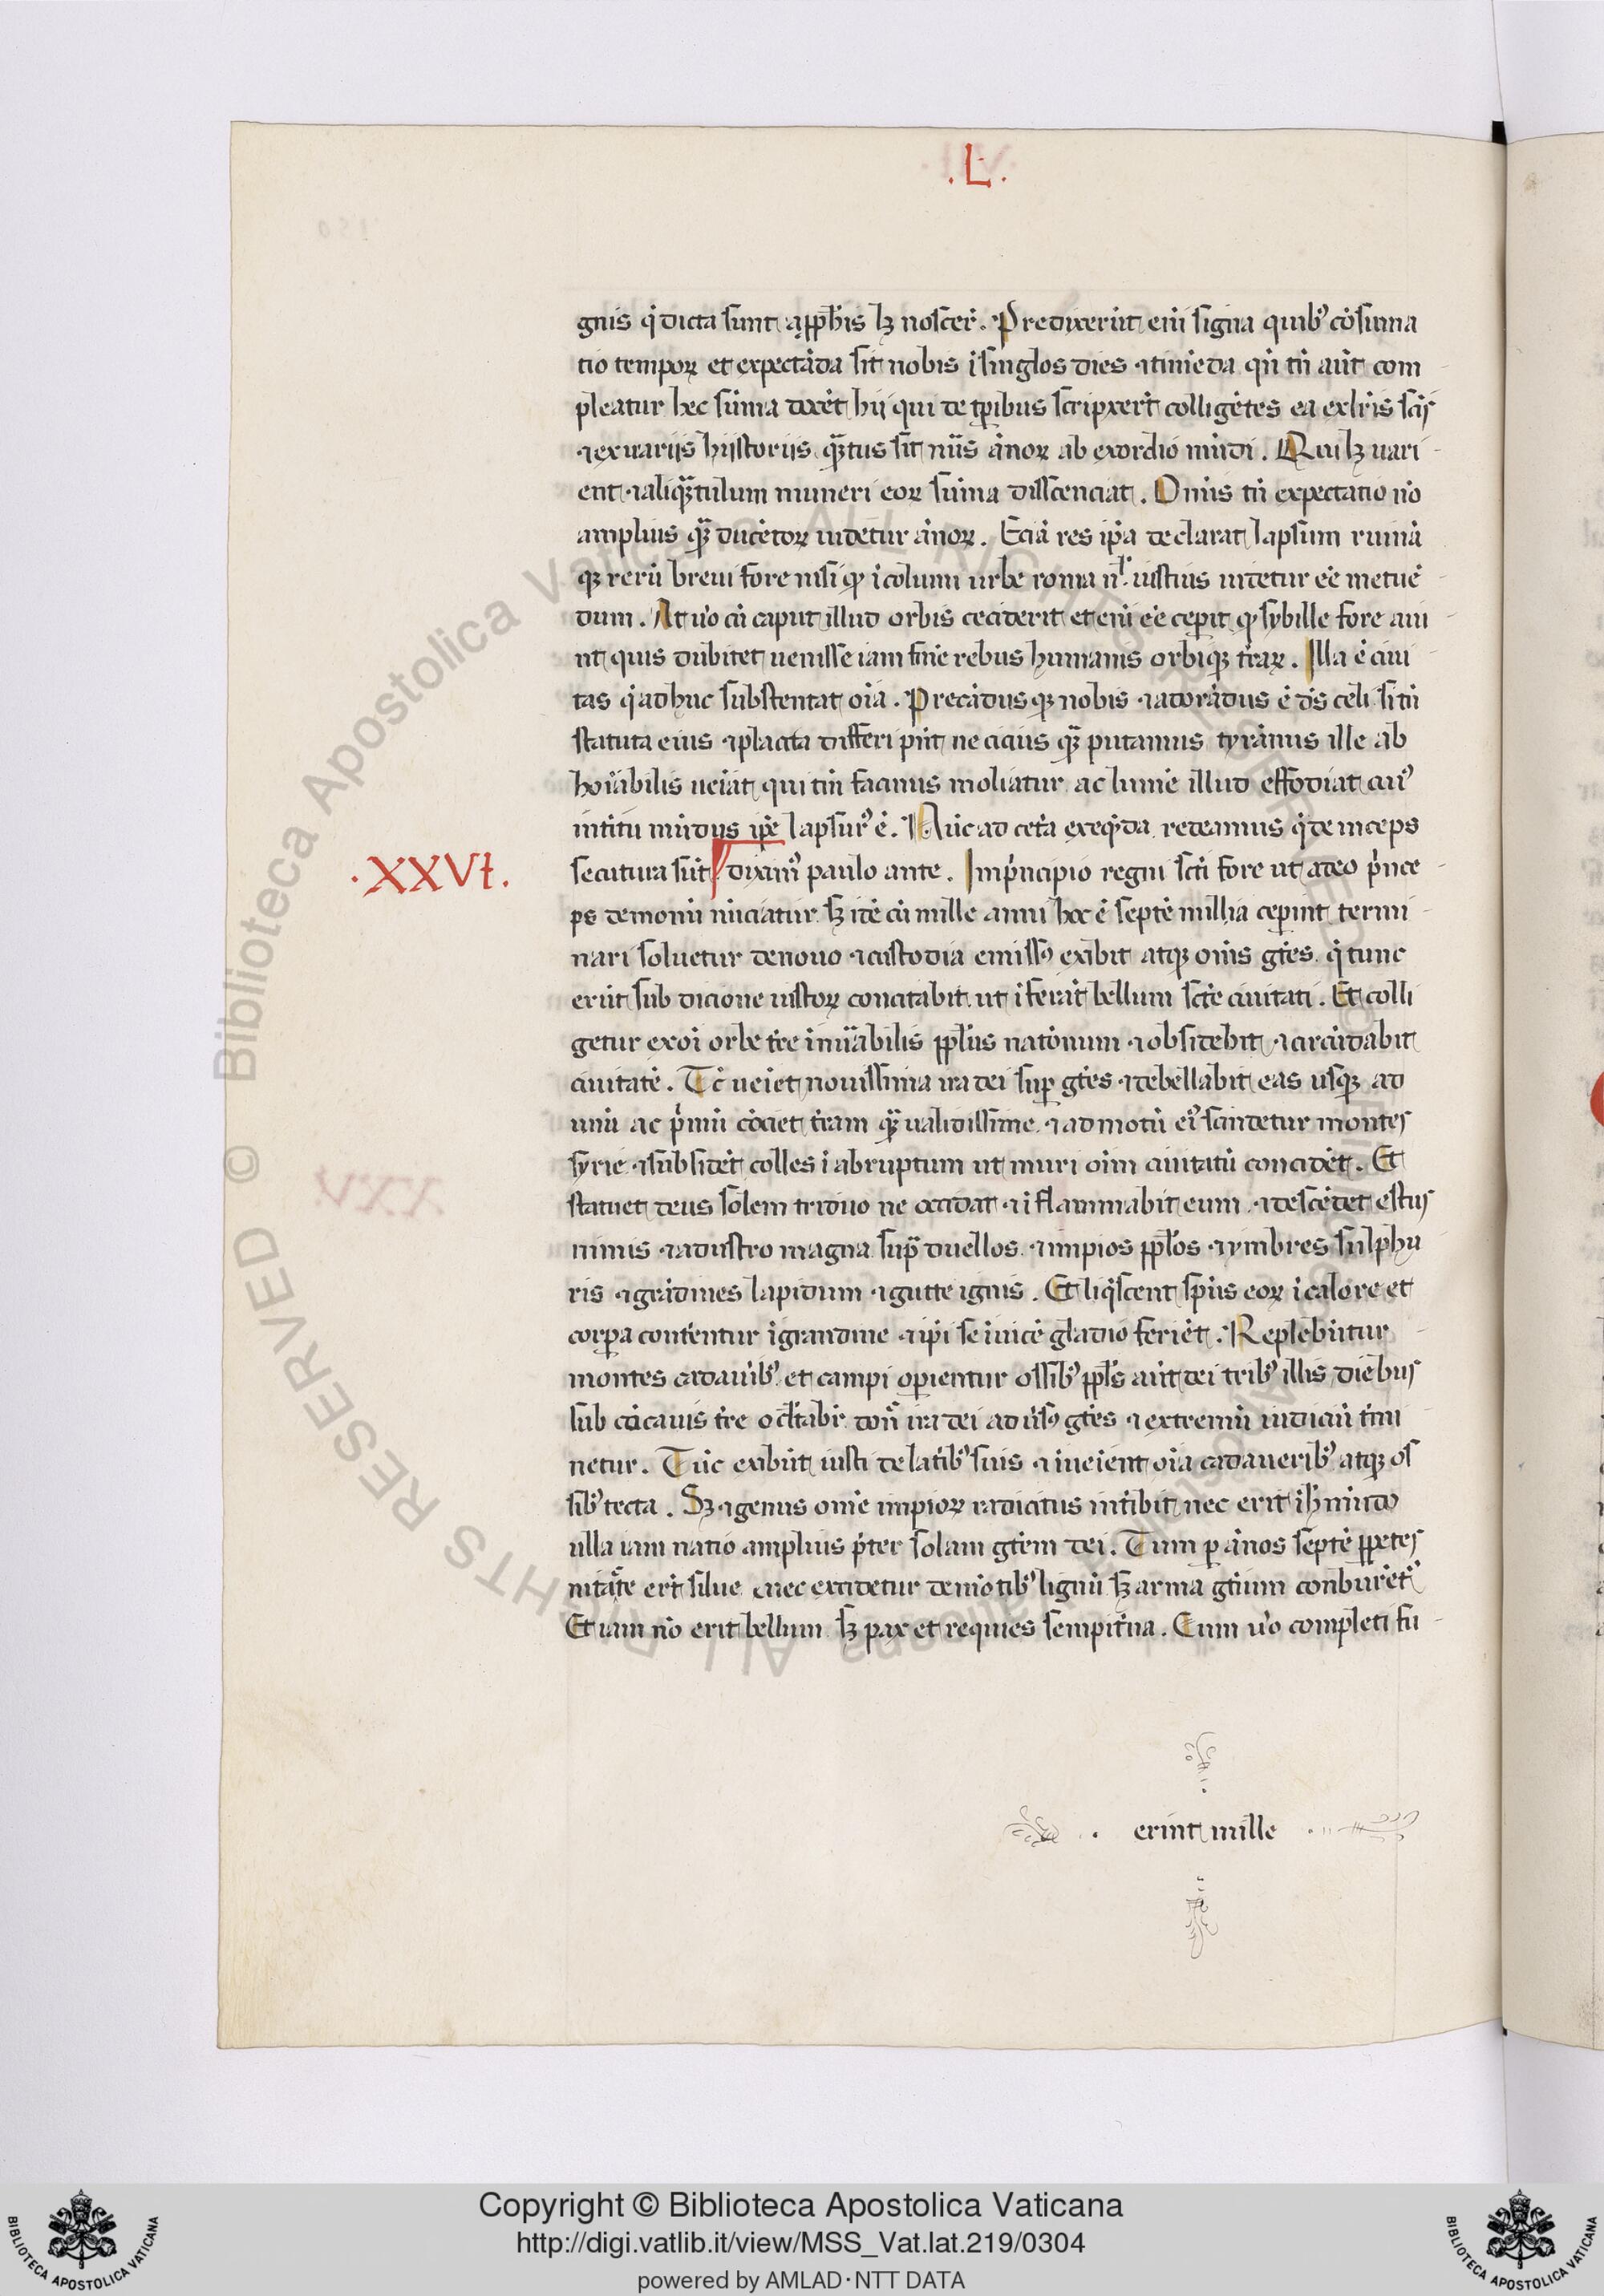 .L.
gnis q̇ dicta sunt aꝓph̄is lꝫ noscer̄. Predixerūt enī signa quibꝰ cōsuma
tio temporꝝ et expectāda sit nobis ī singlos dies ⁊ timēda qn̄ tn̄ aūt com
pleatur hec sūma docēt hij qui de tꝑibus scripxerūt colligētes ea ex lr̄is sc̄is
⁊ ex uariis hijstoriis q̄ntus sit nūs ānorꝝ ab exordio mūdi. Qui lꝫ uari
ent ⁊ aliq̄ntulum numeri eorꝝ sūma disscenciat. Omīs tn̄ expectatio nō
amplius q̄ꝫ ducētorꝝ uidetur ānorꝝ. Eciā res ip̄a declarat lapsum ruinā
qꝫ rerū breui fore nisi qꝫ īcolumi urbe roma nl̄ iustius uidetur eē metuē
dum. At uo cū caput illud orbis ceciderit et enī eē ceꝑit qꝫ sybille fore aiu
nt quis dubitet uenisse iam finē rebus humanis orbiqꝫ t̄rarꝝ. Illa ē ciui
tas q̇ adhuc substentat oīa. Precādus qꝫ nobis ⁊ adorādus ē ds̄ celi si tn̄
statuta eius ⁊ placita differi pn̄t ne cicius q̄ꝫ putamus tyrānus ille ab
hoīabilis ueīat qui tm̄ facinus moliatur ac lumē illud effodiat cuiꝰ
intītu mūdus ip̄e lapsurꝰ ē. Nūc ad cet̄a exeq̄nda redeamus q̇ deinceps
.XXVI.
secutura sūt dixim̄ꝰ paulo ante. In pͥncipio regni sc̄i fore ut a deo pͥnce
ps demonū uīciatur sꝫ idē cū mille anni hoc ē septē millia ceꝑint termi
nari soluetur denouo ⁊ custodia emissꝰ exibit atqꝫ omīs gētes q̇ tunc
erūt sub dicione iustorꝝ concitabit ut īferāt bellum sct̄e ciuitati. Et colli
getur ex oī orbe t̄re īnūabilis ꝓpl̄us natōnum ⁊ obsidebit ⁊ circūdabit
ciuitatē. Tc̄ ueīet nouissima ira dei suꝑ gētes ⁊ debellabit eas usqꝫ ad
unū ac pͥmū cōciet t̄ram q̄ꝫ ualidissime ⁊ ad motū eiꝰ scindetur montes
syrie ⁊ subsidēt colles ī abruptum ut muri oīm ciuitatū concidēt. Et
statuet deus solem triduo ne occidat ⁊ īflammabit eum ⁊ descēdet estus
nimis ⁊ adustio magna supͣ duellos ⁊ impios ꝓpl̄os ⁊ ymbres sulphu
ris ⁊ grādines lapidum ⁊ gutte ignis. Et liq̇scent spūs eorꝝ ī calore et
corꝑa contentur ī grandine ⁊ ip̄i se īuicē gladio feriēt. Replebūtur
montes cadaūibꝰ et campi oꝑientur ossibꝰ ꝓpl̄s aūt dei tribꝰ illis diebus
sub cōcauis t̄re occl̄tabr̄ don̄ ira dei aduīsꝰ gētes ⁊ extremū iudiciū t̄mi
netur. Tūc exibūt iusti de latībꝰ suis ⁊ īueīent oīa cadaueribꝰ atqꝫ os
sibꝰ tecta. Sꝫ ⁊ genus omē impiorꝝ radicitus int̄ibit nec erit ī hͦ mūdo
ulla iam natio amplius p̄ter solam gētem dei. Tum ꝑ ānos septē ꝑpetes
erīt silue nec excidetur de mōtibꝰ lignū sꝫ arma gētium conburētꝰ
Et iam nō erit bellum sꝫ pax et requies sempit̄na. Cum uo completi fu
erint mille
© Biblioteca Apostolica Vaticana ALL RIGHTS RESERVED
Copyright © Biblioteca Apostolica Vaticana
http://digi.vatlib.it/view/MSS_Vat.lat.219/0304
powered by AMLAD·NTT DATA
BIBLIOTECA APOSTOLICA VATICANA
BIBLIOTECA APOSTOLICA VATICANA